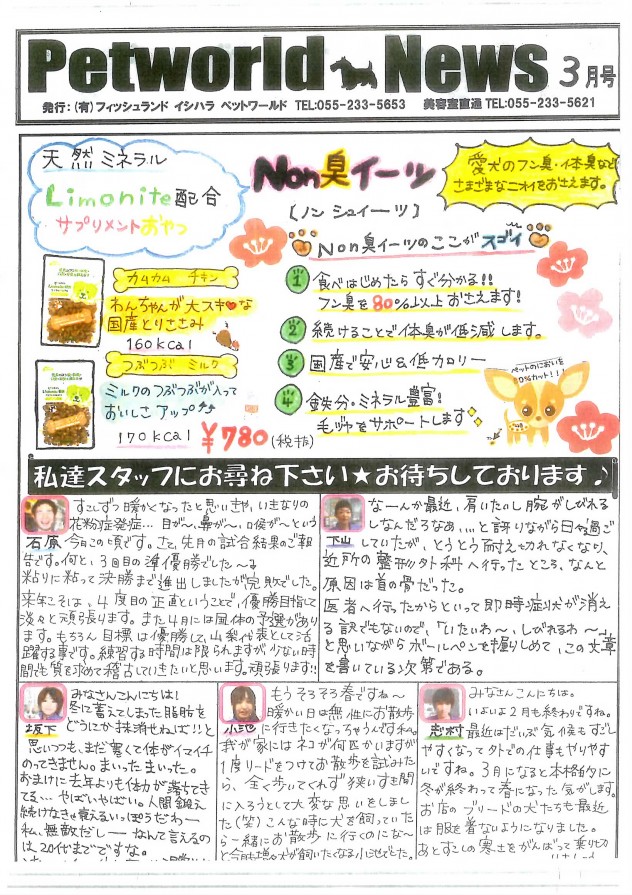 Petworld News 3月号
発行:(有)フィッシュランド イシハラ ペットワールド TEL:055-233-5653 美容室直通TEL:055-233-5621
天然ミネラル
Limonite配合
サプリメントおやつ
Non臭イーツ
[ノンシュイーツ]
愛犬のフン臭・体臭など
さまざまなニオイをおさえます。
Non臭イーツのここがスゴイ
1 食べはじめたらすぐ分かる!!
フン臭を80%以上おさえます!
2 続けることで体臭が低減します。
3 国産で安心&低カロリー
4 鉄分・ミネラル豊富!
毛ヅヤをサポートします
カムカム チキン
わんちゃんが大スキ♥な
国産とりささみ
160kcal
つぶつぶ ミルク
ミルクのつぶつぶが入って
おいしさアップ♪♪
170kcal
¥780(税抜)
ペットのにおいを
カット!!!
私達スタッフにお尋ね下さい★お待ちしております♪
石原
すこしずつ暖かくなったと思いきや、いきなりの
花粉症発症…目が〜、鼻が〜、喉が〜という
今日この頃です。さて、先月の試合結果のご報
告です。何と、3回目の準優勝でした〜♪
粘りに粘って決勝まで進出しましたが完敗でした。
来年こそは、4度目の正直ということで、優勝目指して
淡々と頑張ります。また4月には団体の予選があり
ます。もちろん目標は優勝して、山梨代表として活
躍する事です。練習する時間は限られますが少ない時
間でも質を求めて稽古していきたいと思います。頑張ります!!
下山
なーんか最近、肩いたのし腕がしびれる
しなんだろなぁ…と訝りながら日々過ご
していたが、とうとう耐え切れなくなり、
近所の整形外科へ行ったところ、なんと
原因は首の骨だった。
医者へ行ったからといって即時症状が消え
る訳でもないので、「いたいわ〜、しびれるわ〜」
と思いながらボールペンを握りしめて、この文章
を書いている次第である。
坂下
みなさんこんにちは!
冬に蓄えてしまった脂肪を
どうにか抹消せねば!!と
思いつつも、まだ寒くて体がイマイチ
のってきません。まいった、まいった。
おまけに去年よりも体力が落ちてき
てる…やばいやばい。人間鍛え
続けなきゃ衰えるいっぽうだわー
私、無敵だしーなんて言えるの
は20代までですな。
小池
もうそろそろ春ですね〜
暖かい日は無性にお散歩
に行きたくなっちゃうんです私。
我が家にはネコが何匹かいますが
1度リードをつけてお散歩を試みた
ら、全く歩いてくれず狭い方を間
に入ろうとして大変な思いをしまし
た(笑)こんな時に犬を飼っていた
ら一緒にお散歩に行くのにな〜
と今日も増々犬が飼いたくなる小池でした。
志村
みなさんこんにちは。
いよいよ2月も終わりですね。
最近はだいぶ気候もすごし
やすくなって外での仕事もやりやす
いですね。3月になると本格的に
冬が終わって春になった気がします。
お店のブリードの犬たちも最近
は服を着ないようになりました。
あとすこしの寒さをがんばって乗り切